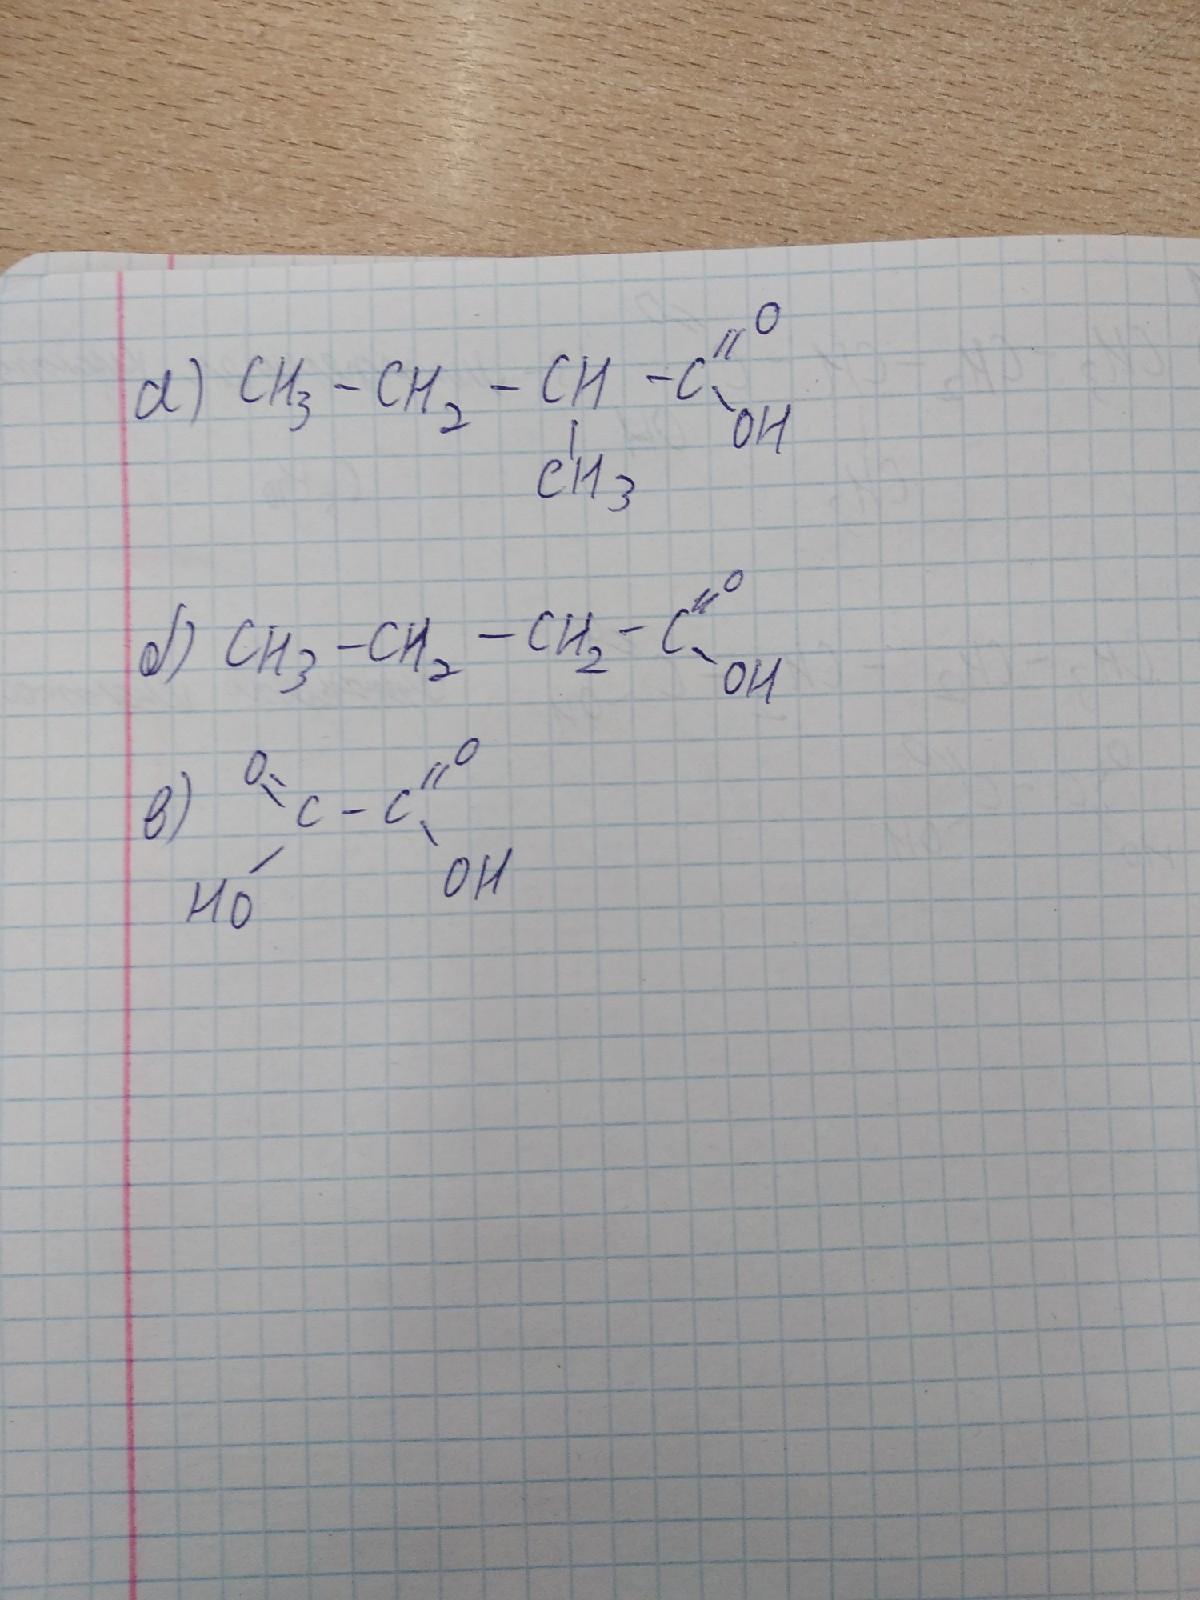 а) CH3 - CH2 - CH - C =O
OH
CH3
б) CH3 - CH2 - CH2 - C =O
OH
в) O= C - C =O
HO OH